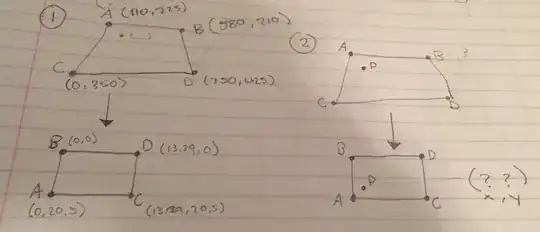 1
A (110,225)
B (580,210)
C
(0,350)
D (750,425)
B (0,0)
D (13.29,0)
A
(0,20.5)
C
(13.29,20.5)
2
A
B
P
C
D
B
D
P
A
C
(? ?)
x, y